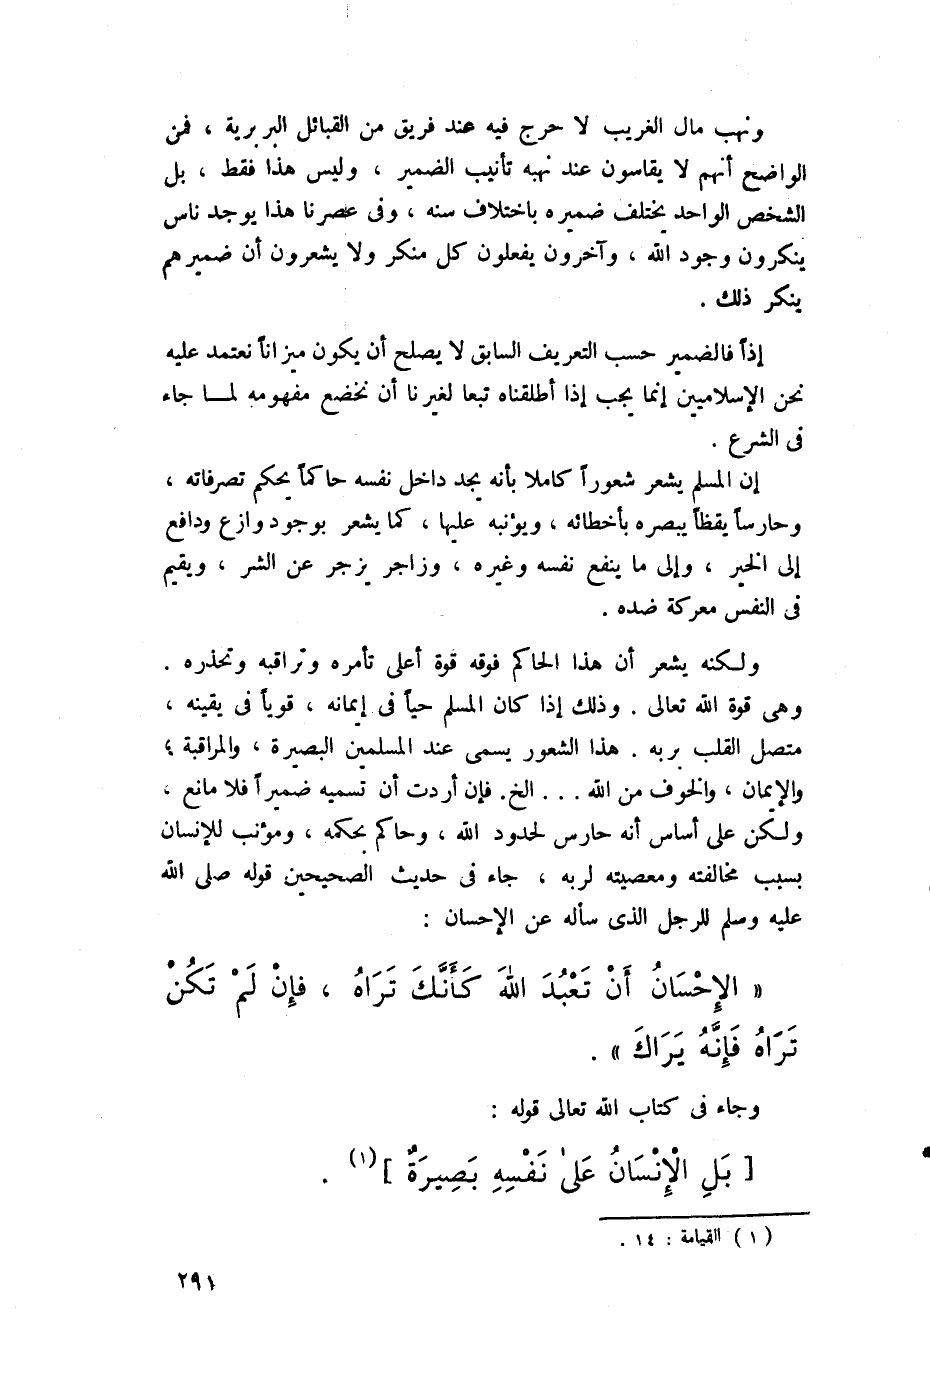 ونهب مال الغريب لا حرج فيه عند فريق من القبائل البربرية ، فمن
الواضح أنهم لا يقاسون عند نهبه تأنيب الضمير ، وليس هذا فقط ، بل
الشخص الواحد يختلف ضميره باختلاف سنه ، وفى عصرنا هذا يوجد ناس
ينكرون وجود الله ، وآخرون يفعلون كل منكر ولا يشعرون أن ضميرهم
ينكر ذلك .
إذاً فالضمير حسب التعريف السابق لا يصلح أن يكون ميزاناً نعتمد عليه
نحن الإسلاميين إنما يجب إذا أطلقناه تبعا لغيرنا أن نخضع مفهومه لمـا جاء
فى الشرع .
إن المسلم يشعر شعوراً كاملا بأنه يجد داخل نفسه حاكماً يحكم تصرفاته ،
وحارساً يقظاً يبصره بأخطائه ، ويؤنبه عليها ، كما يشعر بوجود وازع ودافع
إلى الخير ، وإلى ما ينفع نفسه وغيره ، وزاجر يزجر عن الشر ، ويقيم
فى النفس معركة ضده .
ولكنه يشعر أن هذا الحاكم فوقه قوة أعلى تأمره وتراقبه وتحذره .
وهى قوة الله تعالى . وذلك إذا كان المسلم حياً فى إيمانه ، قوياً فى يقينه ،
متصل القلب بربه . هذا الشعور يسمى عند المسلمين البصيرة ، والمراقبة ؛
والإيمان ، والخوف من الله . . . الخ. فإن أردت أن تسميه ضميراً فلا مانع ،
ولكن على أساس أنه حارس لحدود الله ، وحاكم بحكمه ، ومؤنب للإنسان
بسبب مخالفته ومعصيته لربه ، جاء فى حديث الصحيحين قوله صلى الله
عليه وسلم للرجل الذى سأله عن الإحسان :
« الإِحْسَانُ أَنْ تَعْبُدَ اللهَ كَأَنَّكَ تَرَاهُ ، فإِنْ لَمْ تَكُنْ
تَرَاهُ فَإِنَّهُ يَرَاكَ » .
وجاء فى كتاب الله تعالى قوله :
[ بَلِ الْإِنْسَانُ عَلىٰ نَفْسِهِ بَصِيرَةٌ ] (١) .
( ١ ) القيامة : ١٤ .
٢٩١